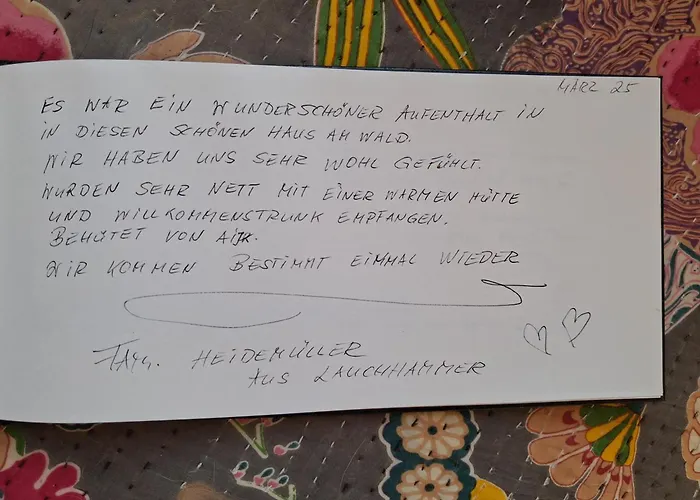 MÄRZ 25
ES WAR EIN WUNDERSCHÖNER AUFENTHALT IN
IN DIESEN SCHÖNEN HAUS AM WALD.
WIR HABEN UNS SEHR WOHL GEFÜHLT.
WURDEN SEHR NETT MIT EINER WARMEN HÜTTE
UND WILLKOMMENSTRUNK EMPFANGEN.
BEHÜTET VON
WIR KOMMEN BESTIMMT EINMAL WIEDER
FAM. HEIDEMÜLLER
AUS LAUCHHAMMER